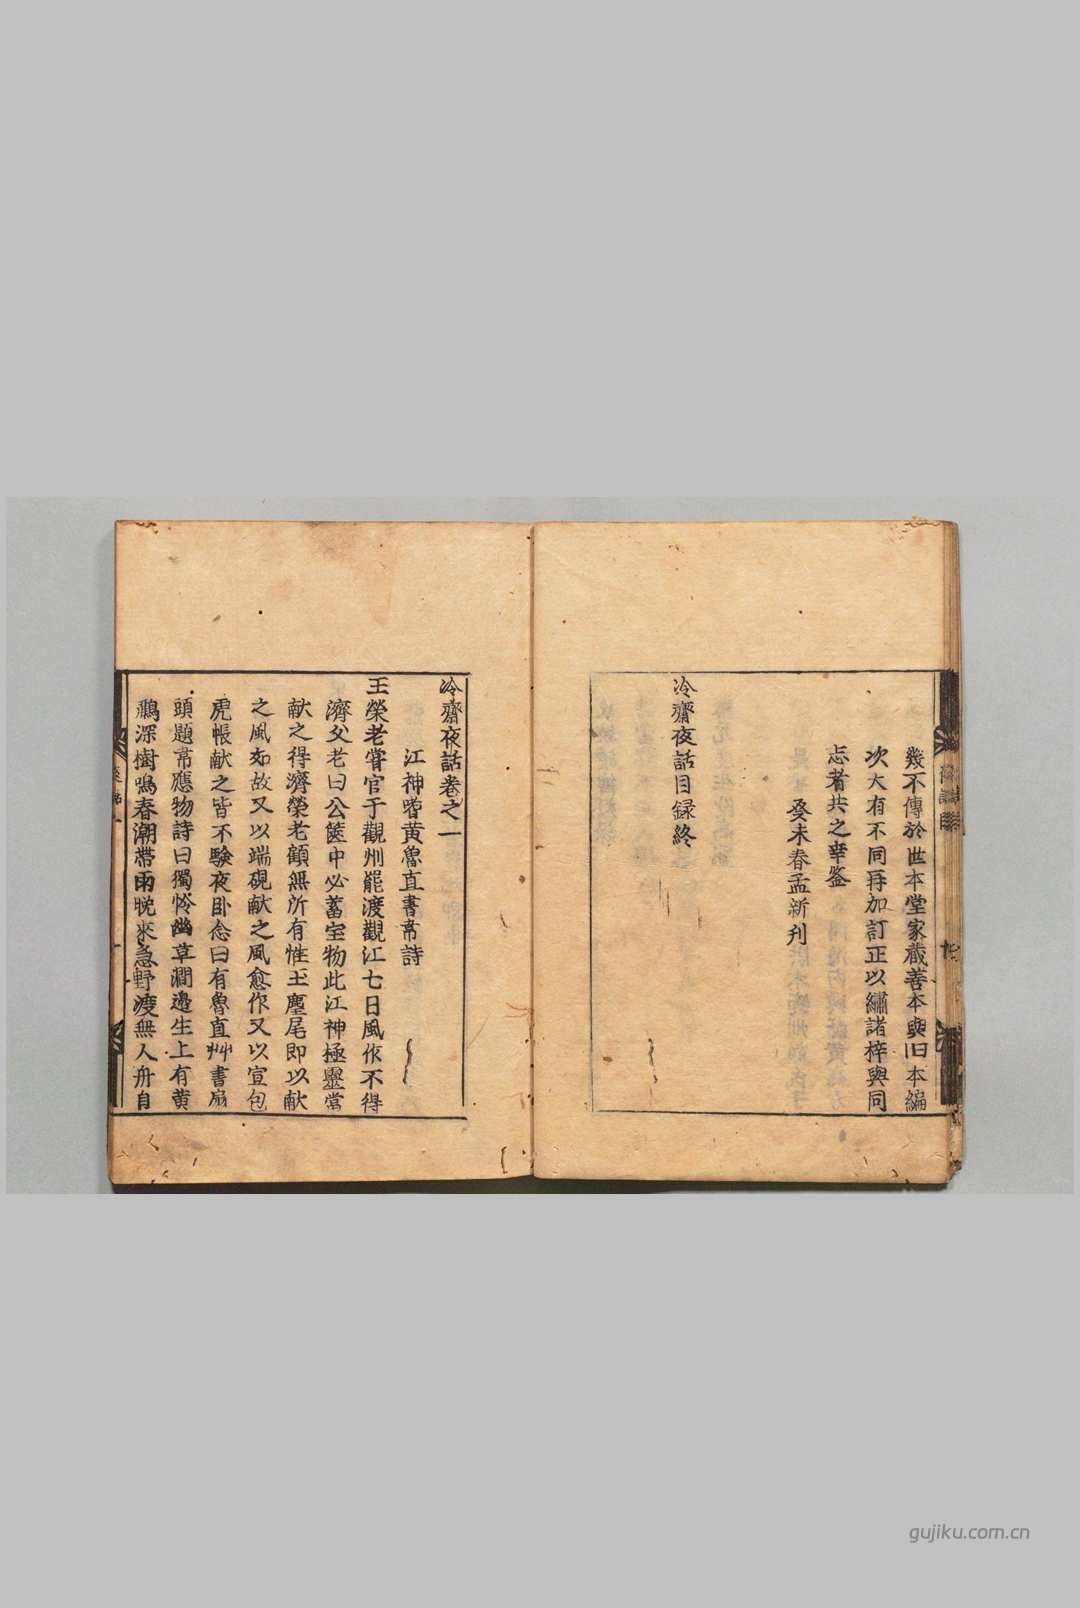 幾不傳於世本堂家蔵善本與旧本編
次大有不同再加訂正以繡諸梓與同
志者共之幸鉴
癸未春孟新刊
冷齋夜話目録終
冷齋夜話卷之一
江神嗜黄魯直書韋詩
王榮老甞官于觀州罷渡觀江七日風作不得
濟父老曰公篋中必蓄宝物此江神極靈當
献之得濟榮老顧無所有惟玉麈尾即以献
之風如故又以端硯献之風愈作又以宣包
虎帳献之皆不驗夜卧念曰有魯直艸書扇
頭題韋應物詩曰獨怜幽草澗邉生上有黄
鸝深樹鳴春潮帶雨晚來急野渡無人舟自
gujiku.com.cn